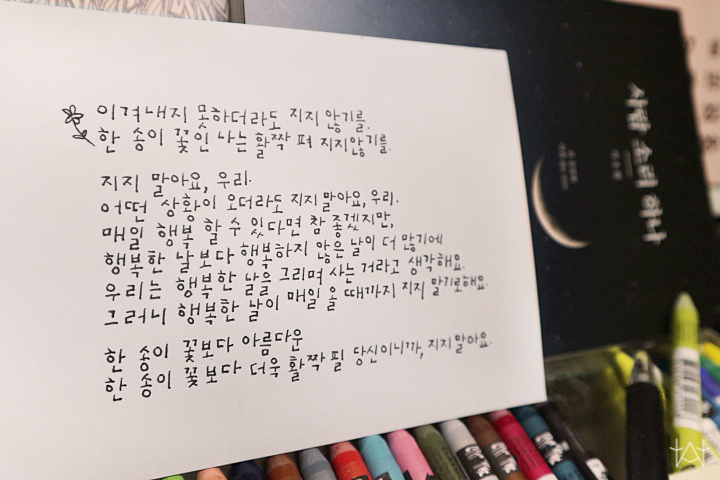 이겨내지 못하더라도 지지 않기를.
한 송이 꽃인 나는 활짝 펴 지지않기를.
지지 말아요, 우리.
어떤 상황이 오더라도 지지 말아요, 우리.
매일 행복 할 수 있다면 참 좋겠지만,
행복한 날보다 행복하지 않은 날이 더 많기에
우리는 행복한 날을 그리며 사는 거라고 생각해요.
그러니 행복한 날이 매일 올 때까지 지지 말기로해요.
한 송이 꽃보다 아름다운
한 송이 꽃보다 더욱 활짝 필 당신이니까, 지지말아요.
사람 소리 하나